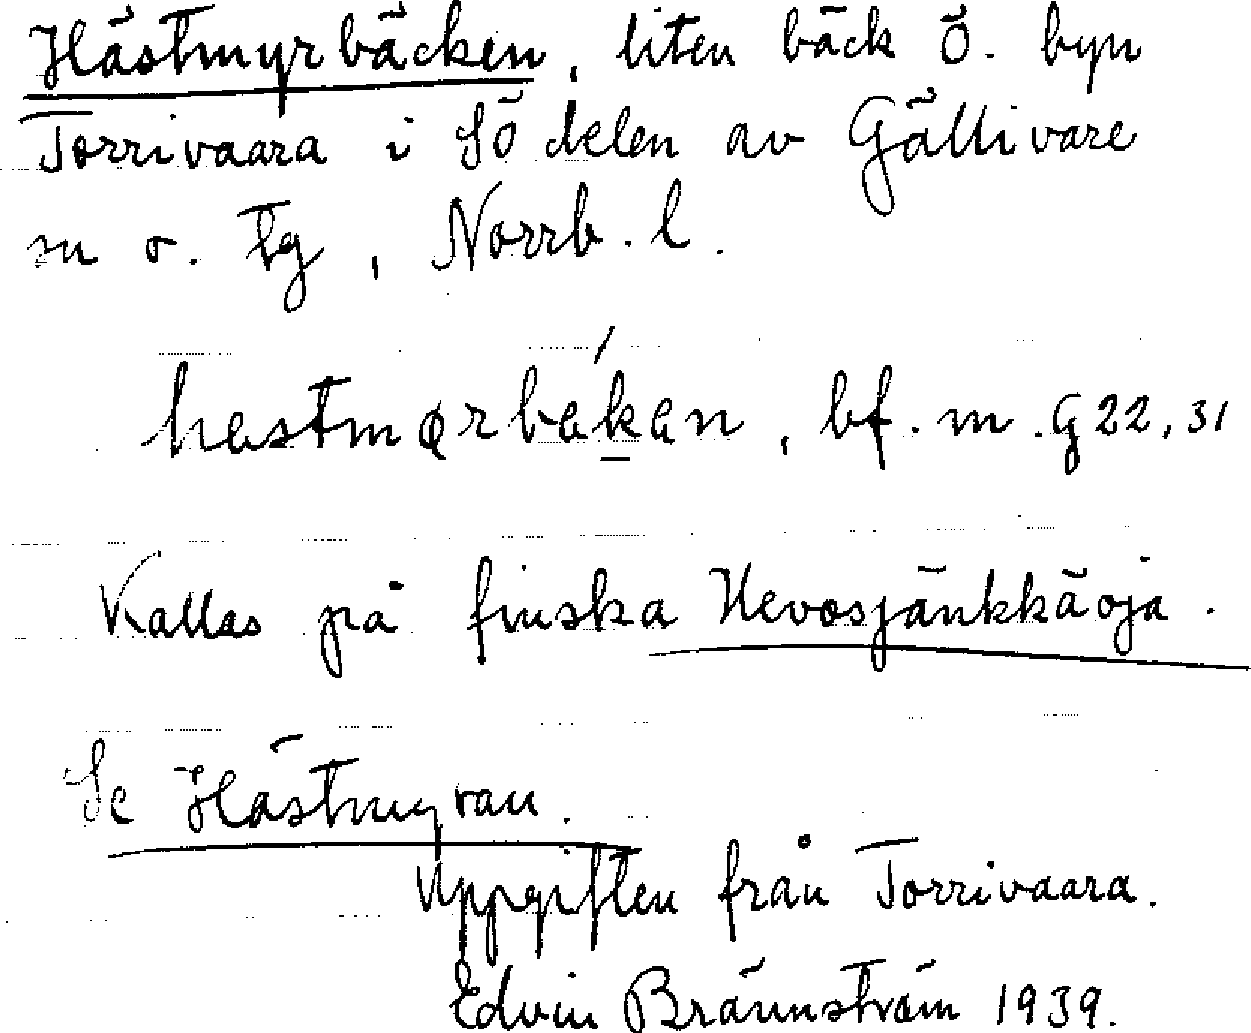 Hästmyrbäcken, liten bäck Ö. byn
Torrivaara i SÖ delen av Gällivare
sn o. tg, Norrb. l.
hestmørbékan, bf. m. G22,31
Kallas på finska Hevosjänkkäoja.
Se Hästmyran.
Uppgiften från Torrivaara.
Edvin Brännström 1939.